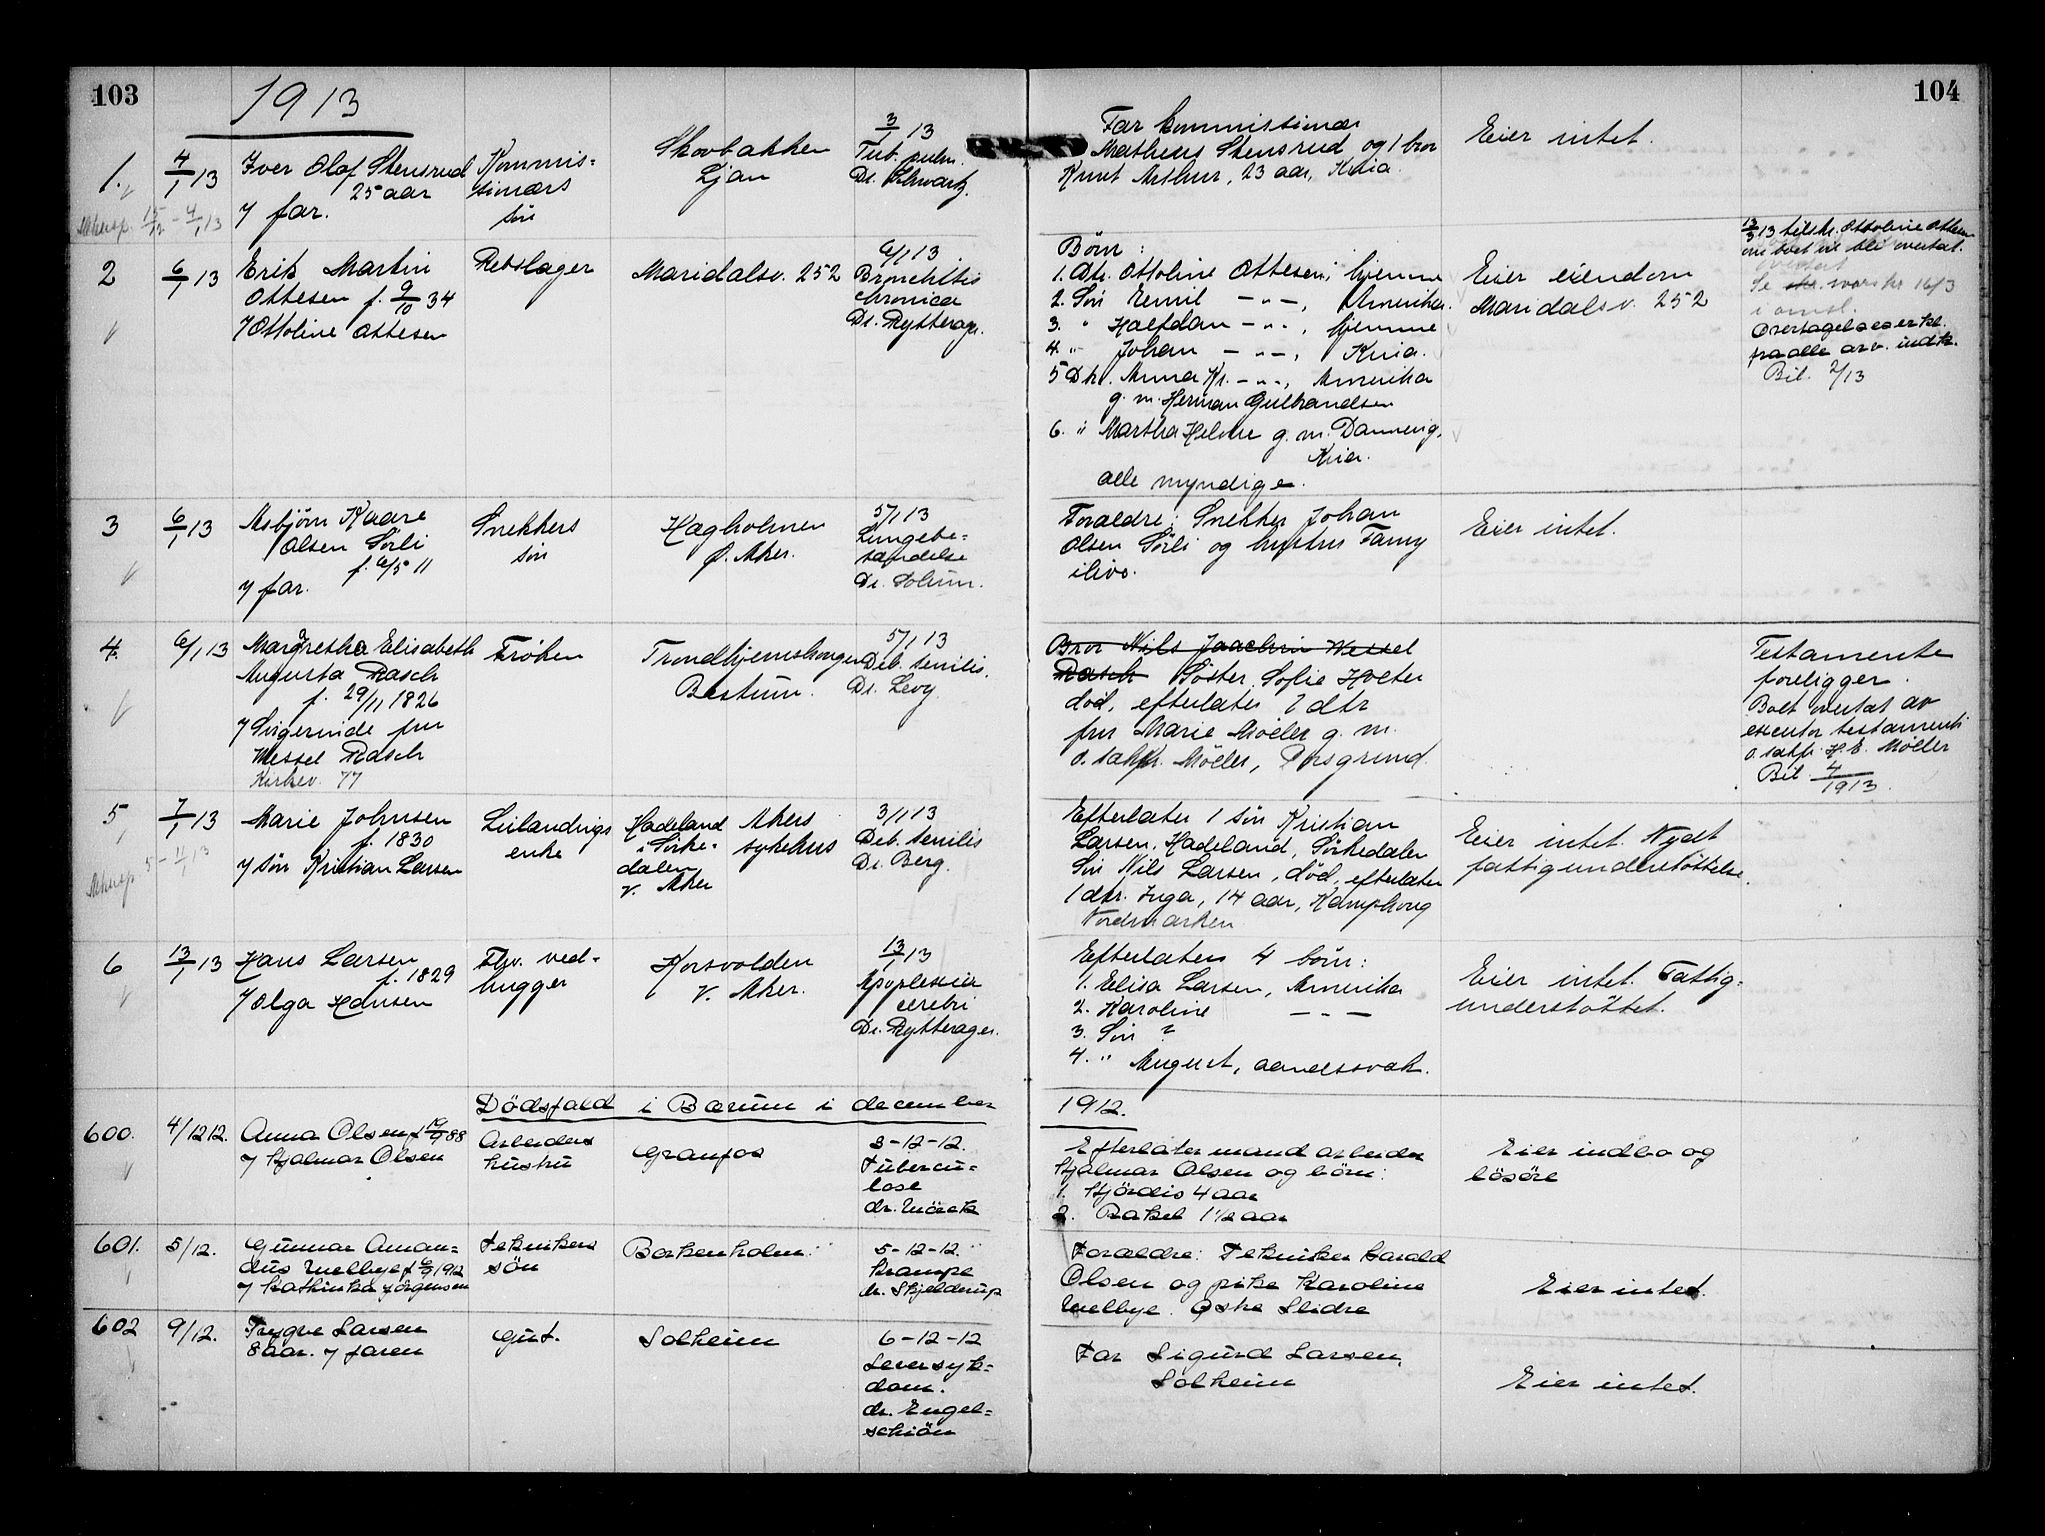 103
104
1913
1.
4/1 13
Iver Olaf Stensrud
25 aar
7 far.
Kommis=
sionærs
sön
Skovbakken
Ljan
3/1 13
Tub. pulm.
Dr. Schwartz.
Far kommissionær
Matheus Stensrud og 1 bror
Knut Arthur, 23 aar, Kria.
Eier intet.
15/12 - 4/1 13
2
6/1 13
Erik Martin
Ottesen f. 9/10 34
7 Ottoline Ottesen
Rebslager
Maridalsv. 252
6/1 13
Bronchitis
chronica
Dr. Rytterager.
Börn:
1. Dtr. Ottoline Ottesen, hjemme
2. Sön Emil -"-, Amerika.
3. " Halfdan -"-, hjemme
4. " Johan -"-, Kria.
5 Dtr. Anna Kr. -"-, Amerika
g. m. Herman Gulbrandsen
6. " Martha Helene g. m. Dannevig,
Kria.
alle myndige.
Eier eiendom
Maridalsv. 252
13/3 13 tilskr. Ottoline Ottesen
om boet vil bli overtat.
overtat
Se skr. vors nr 16/3
i omsl.
Overtagelseserkl.
fra alle arv. indk.
Bil. 2/13
3
6/1 13
Asbjörn Kaare
Olsen Sörli
f. 6/5 11
7 far.
Snekkers
sön
Hagholmen
Ö. Aker.
5/1 13
Lungebe=
tændelse
Dr. Solum.
Forældre: Snekker Johan
Olsen Sörli og hustru Fanny
ilive.
Eier intet.
4.
6/1 13
Margrethe Elisabeth
Augusta Rasch
f. 29/11 1826
7 Svigerinde fru
Wessel Rasch
Kirkev. 77
Fröken
Trondhjemshougen
Bestum.
5/1 13
Deb. senilis.
Dr. Levy.
Bror Nils Joachim Wessel
Rasch Söster Sofie Holter
död, efterlater 1 dtr
fru Marie Möller g. m.
o. sakfr. Möller, Porsgrund.
Testamente
foreligger.
Boet overtat av
executor testamenti
o. sakfr. H. E. Möller
Bil. 4/1913.
5
7/1 13
Marie Johnsen
f. 1830
7 sön Kristian Larsen
Leilændings
enke
Hadeland
i Sörke=
dalen
V. Aker
Akers
sykehus
3/1 13
Deb. senilis
Dr. Berg.
Efterlater 1 sön Kristian
Larsen, Hadeland, Sörkedalen
Sön Nils Larsen, död, efterlater
1 dtr. Inga, 14 aar, Kamphoug
Nordmarken
Eier intet. Nydt
fattigunderstöttelse.
5 - 11/1 13
6
13/1 13
Hans Larsen
f. 1829
7 Olga Hansen
Fhv. ved=
hugger
Korsvolden
V. Aker.
13/1 13
Apoplexia
cerebri
Dr. Rytterager.
Efterlater 4 börn:
1. Elisa Larsen, Amerika
2. Karoline -"-
3. Sön ?
4. " August, aandssvak.
Eier intet. Fattig=
understöttet.
Dödsfald i Bærum i december
1912.
600.
4/12 12.
Anna Olsen f 88
7 Hjalmar Olsen
Arbeiders
hustru
Granfos
3-12-12.
Tubercu=
lose
dr. Mörck
Efterlater mand arbeider
Hjalmar Olsen og börn:
1. Hjördis 4 aar
2. Rakel 1 1/2 aar
Eier indbo og
lösöre
601.
5/12.
Gunnar Aman=
dus Melbye f 1912
7 Kathinka Jörgensen
Teknikers
sön
Borkenholm.
5-12-12.
Krampe
dr. Skjelderup
Forældre: Tekniker Harald
Olsen og pike Karoline
Melbye. Östre Slidre
Eier intet.
602
9/12.
Trygve Larsen
8 aar. 7 faren
Gut.
Solheim
6-12-12
Leversyk=
dom.
dr. Engel=
schiön
Far Sigurd Larsen,
Solheim
Eier intet.